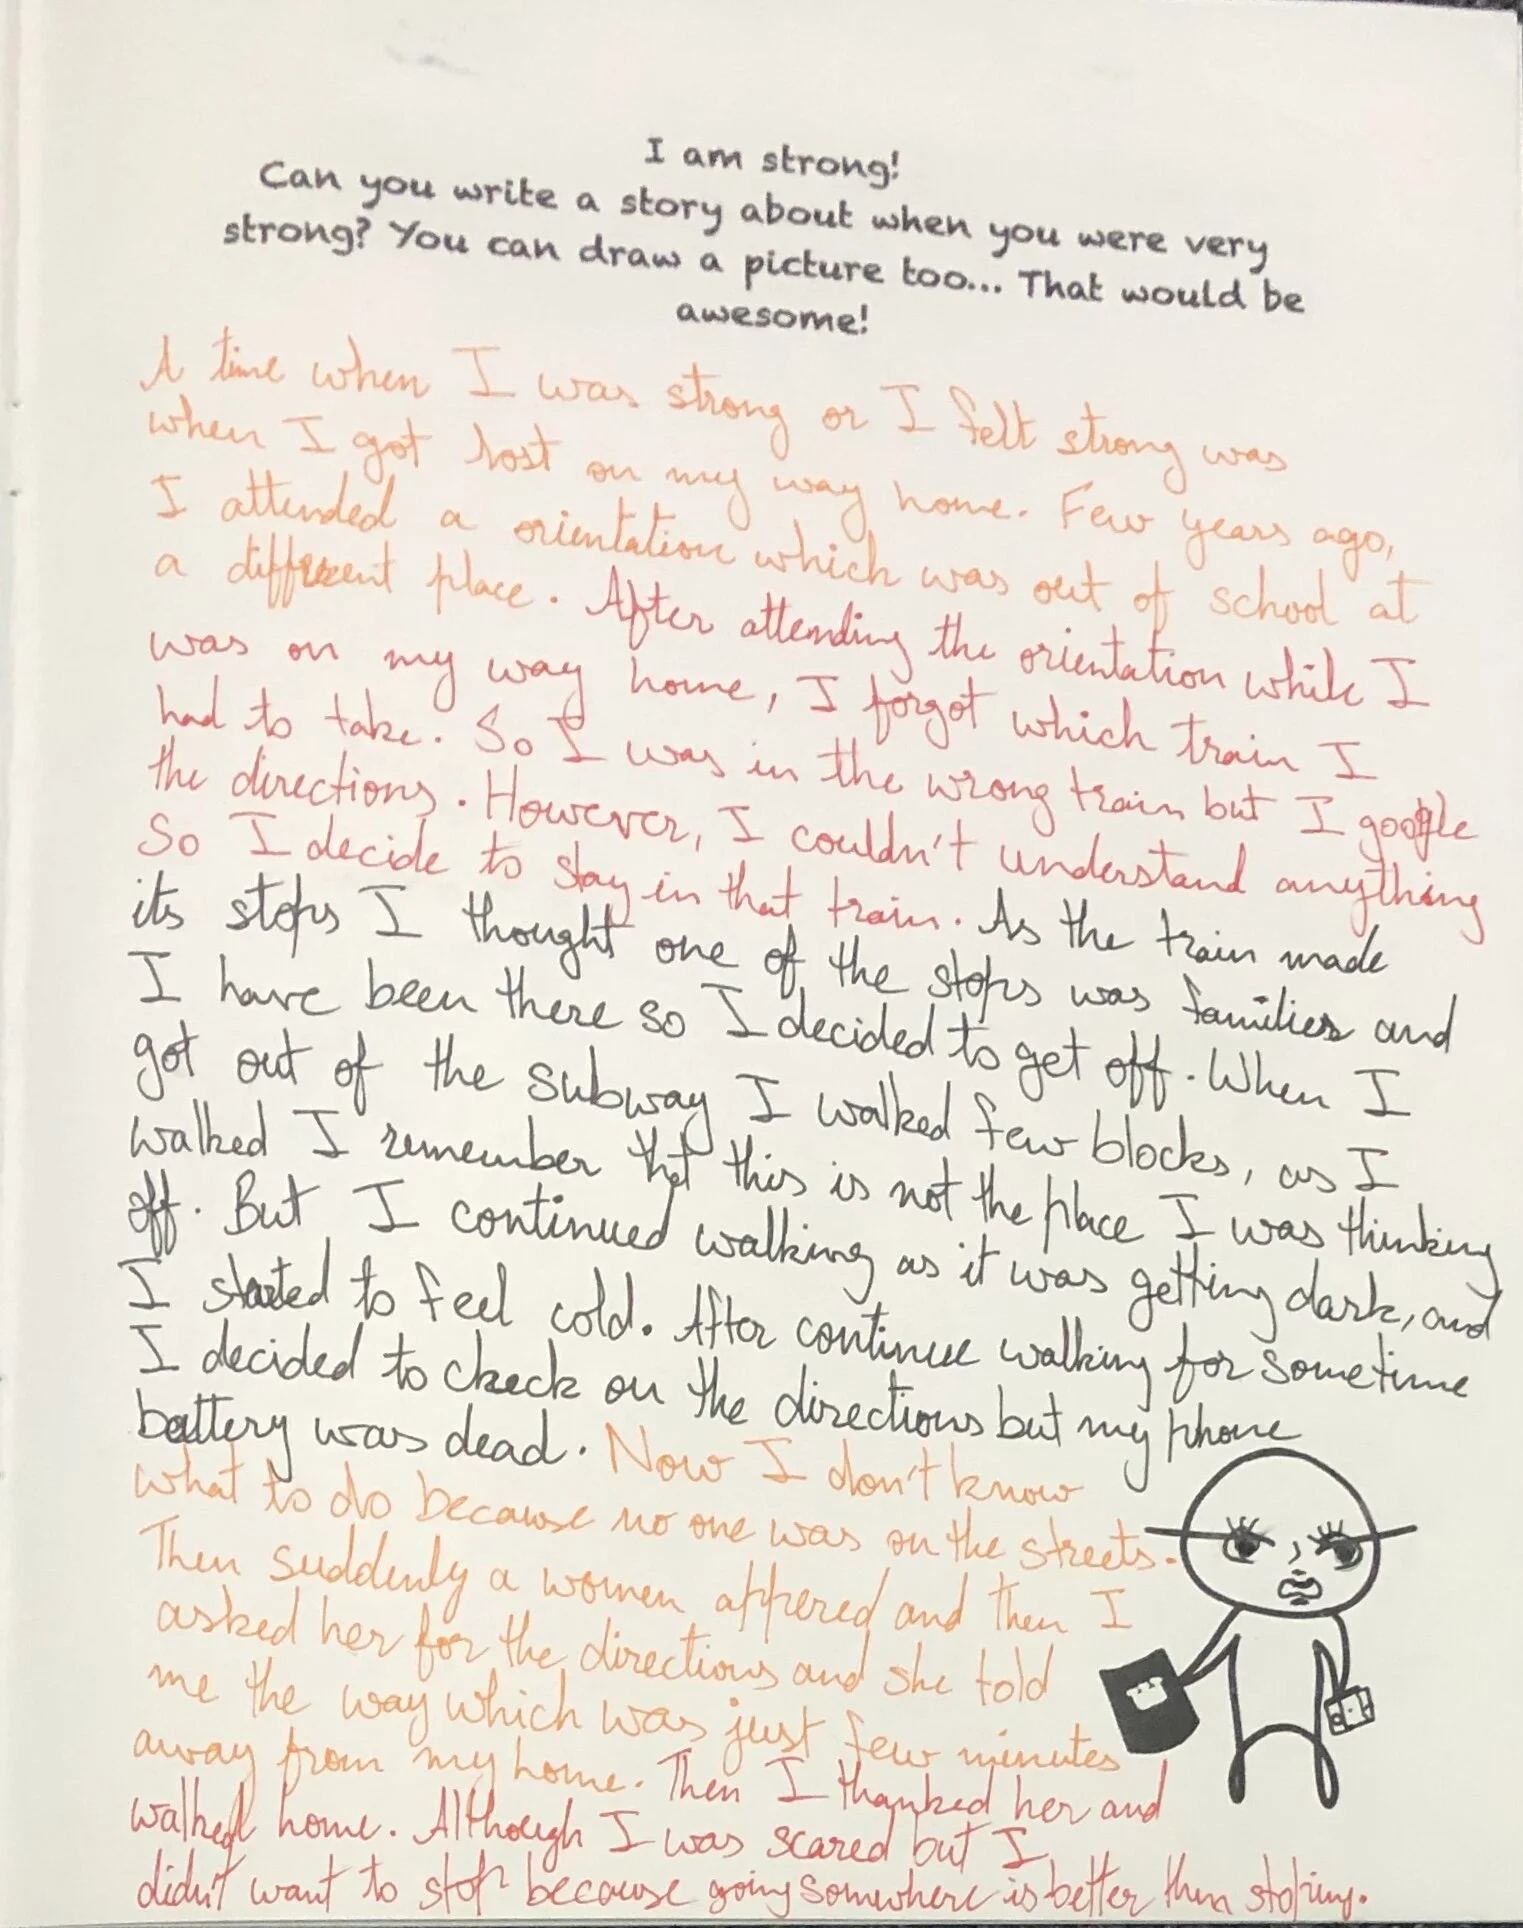 I am strong!
Can you write a story about when you were very
strong? You can draw a picture too... That would be
awesome!
A time when I was strong or I felt strong was
when I got lost on my way home. Few years ago,
I attended a orientation which was out of school at
a different place. After attending the orientation while I
was on my way home, I forgot which train I
had to take. So I was in the wrong train but I google
the directions. However, I couldn't understand anything
So I decide to stay in that train. As the train made
its stops I thought one of the stops was families and
I have been there so I decided to get off. When I
got out of the subway I walked few blocks, as I
walked I remember that this is not the place I was thinking
off. But I continued walking as it was getting dark, and
I started to feel cold. After continue walking for sometime
I decided to check on the directions but my phone
battery was dead. Now I don't know
what to do because no one was on the streets.
Then suddenly a women appered and then I
asked her for the directions and she told
me the way which was just few minutes
away from my home. Then I thanked her and
walked home. Although I was scared but I
didn't want to stop because going somewhere is better then stoping.